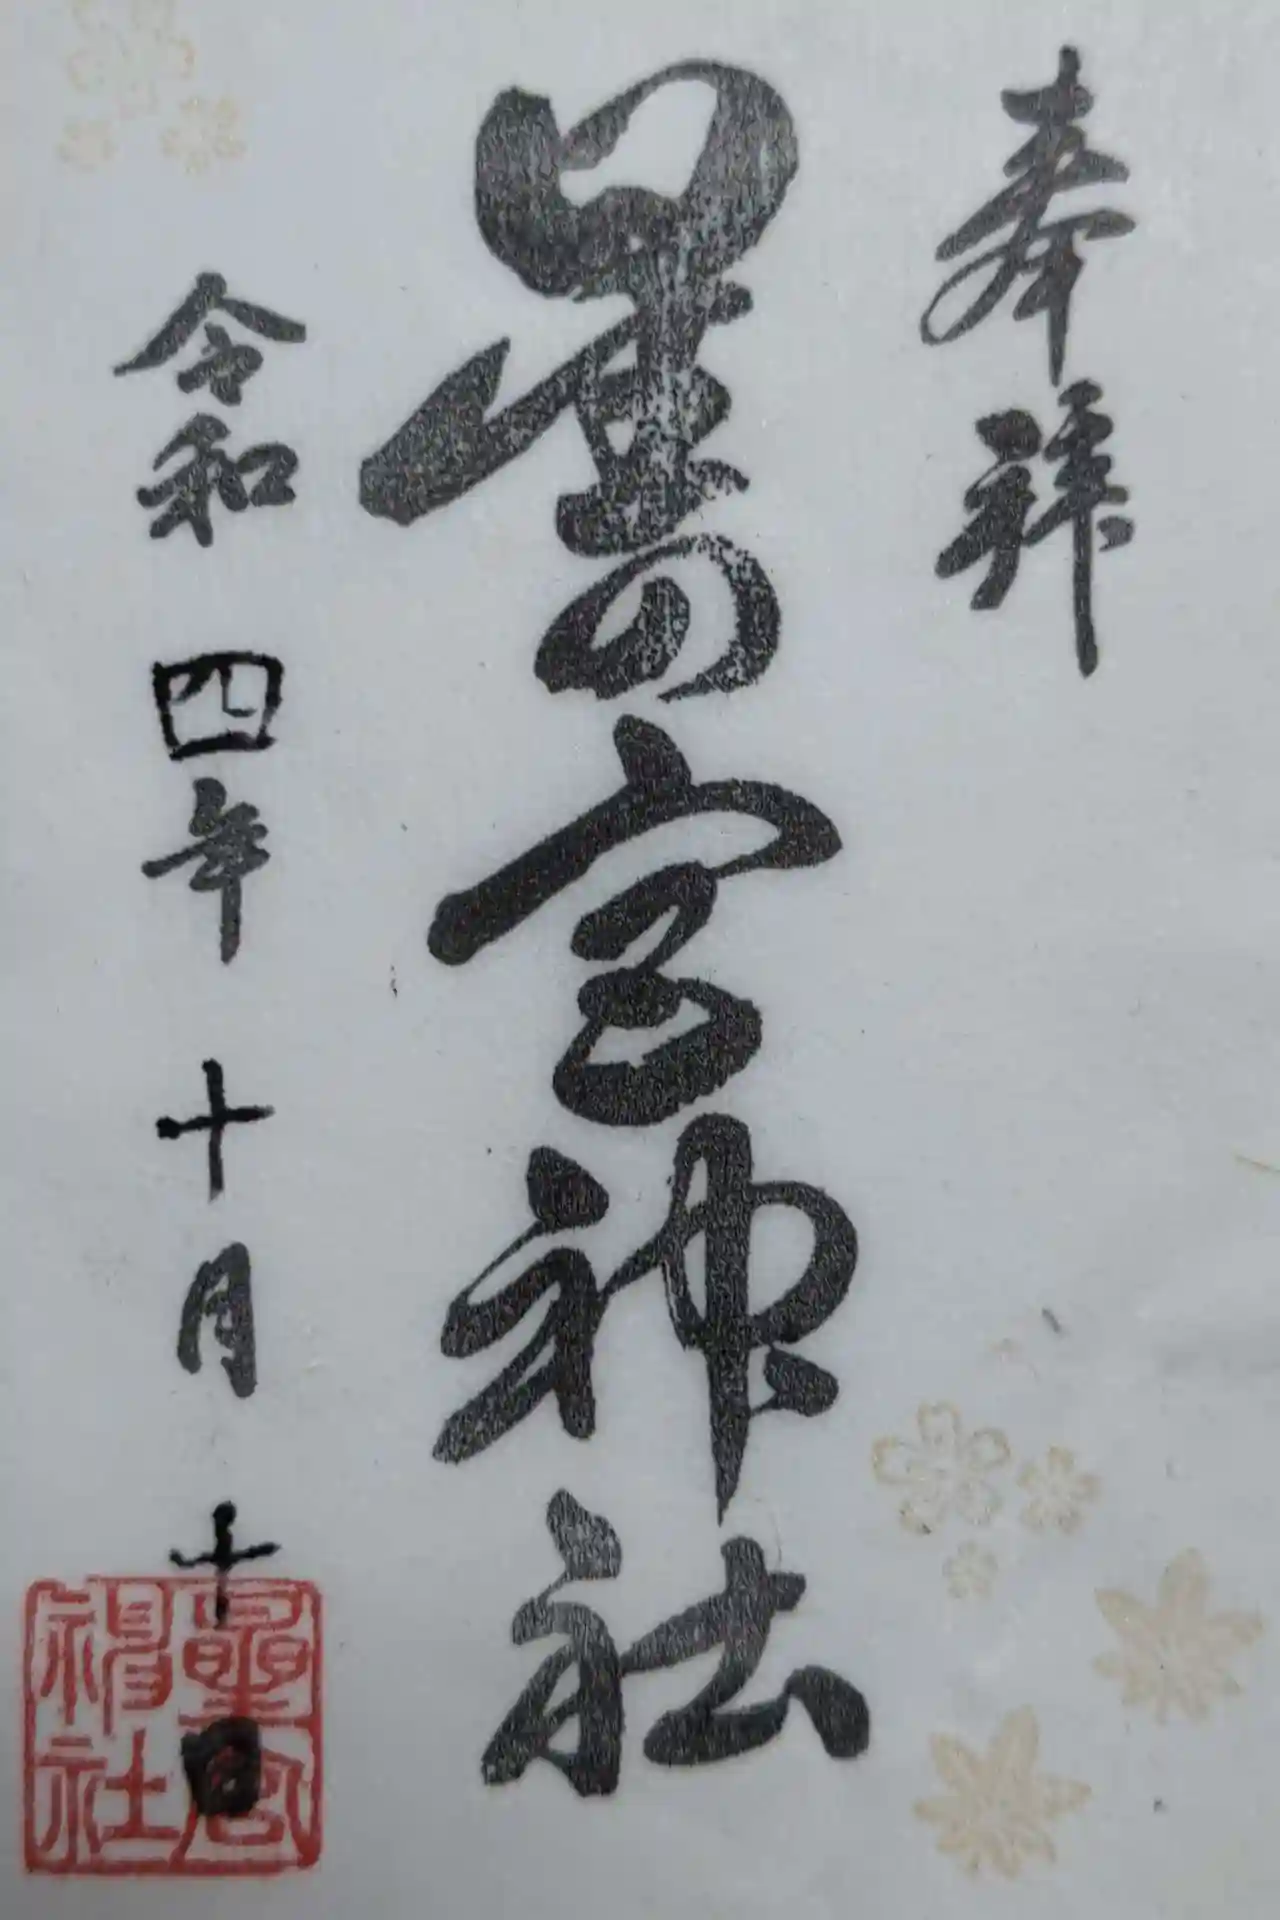 奉拝
星の宮神社
令和四年十月十日
星宮神社